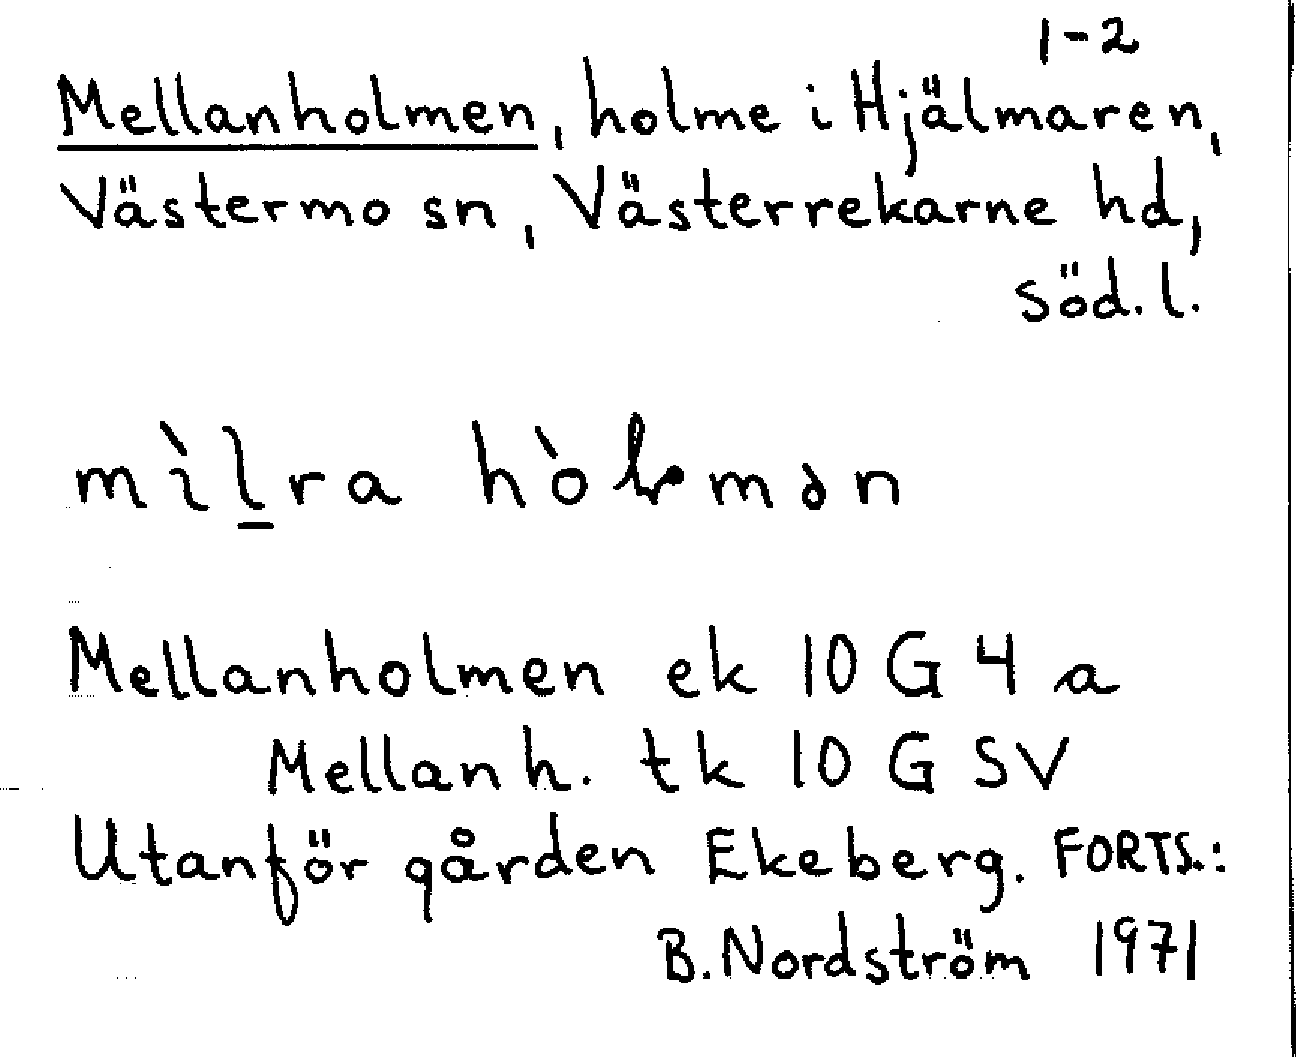 1-2
Mellanholmen, holme i Hjälmaren,
Västermo sn, Västerrekarne hd,
söd. l.
Mellanholmen ek 10 G 4 a
Mellanh. tk 10 G SV
Utanför gården Ekeberg. FORTS.:
B. Nordström 1971